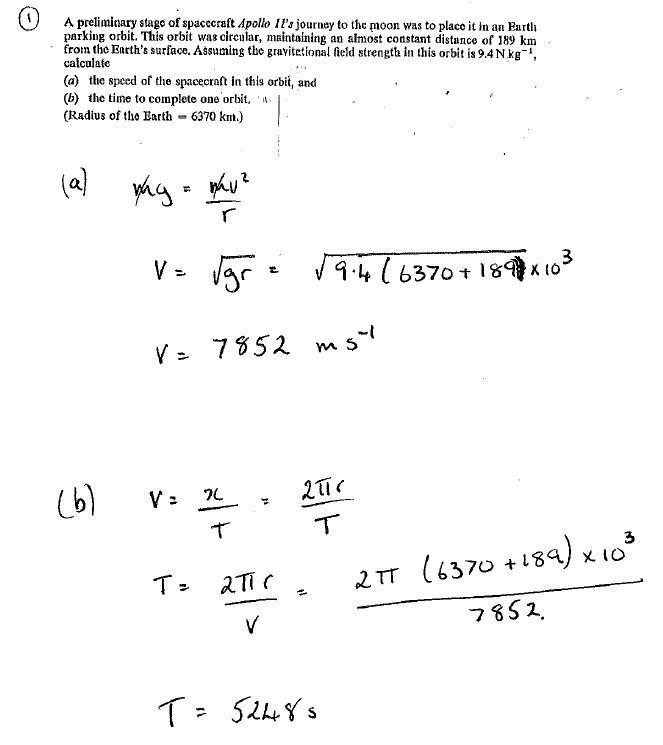 1
A preliminary stage of spacecraft Apollo 11's journey to the moon was to place it in an Earth
parking orbit. This orbit was circular, maintaining an almost constant distance of 189 km
from the Earth's surface. Assuming the gravitational field strength in this orbit is 9.4 N kg⁻¹,
calculate
(a) the speed of the spacecraft in this orbit, and
(b) the time to complete one orbit.
(Radius of the Earth = 6370 km.)
(a) mg = mv²/r
v = √gr = √9.4 (6370 + 189) × 10³
v = 7852 m s⁻¹
(b) v = x/T = 2πr/T
T = 2πr/v = 2π (6370 + 189) × 10³/7852.
T = 5248 s